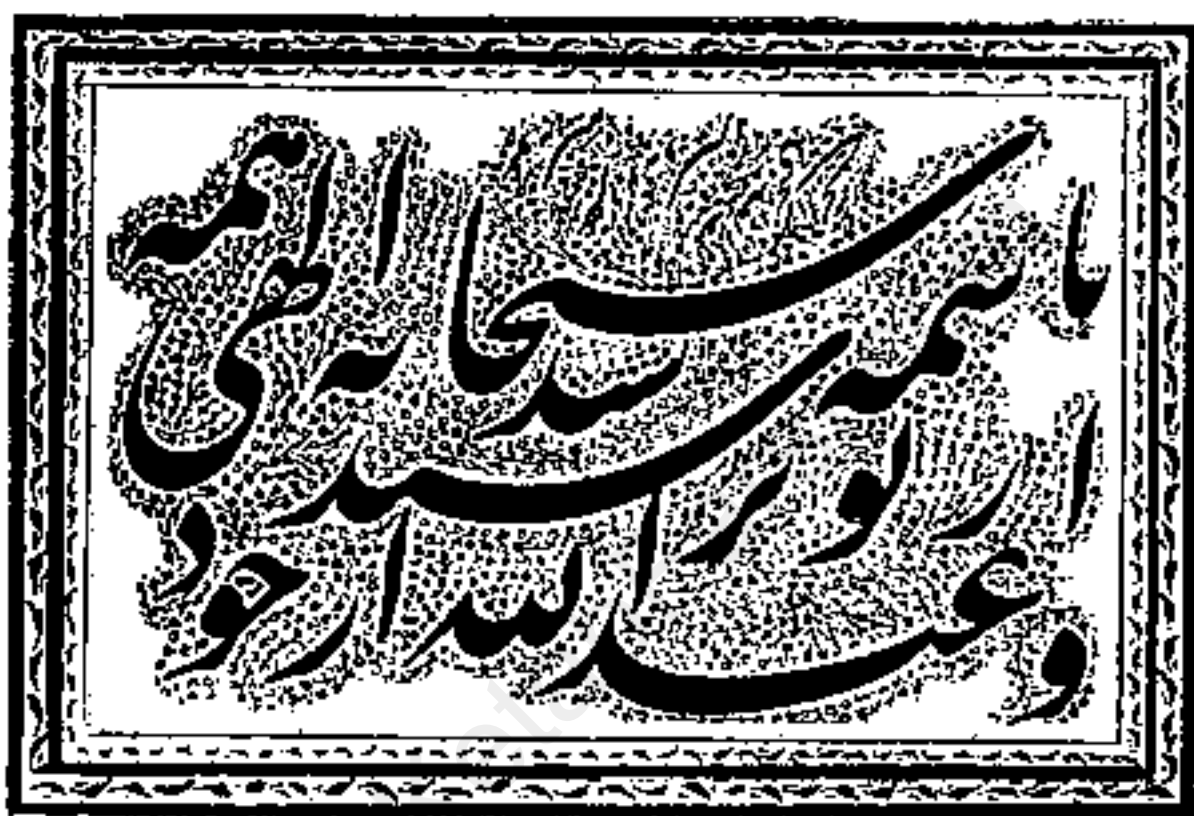 باسمه سبحانه الهی همه
از تو ترسند
و عبدالله از خود